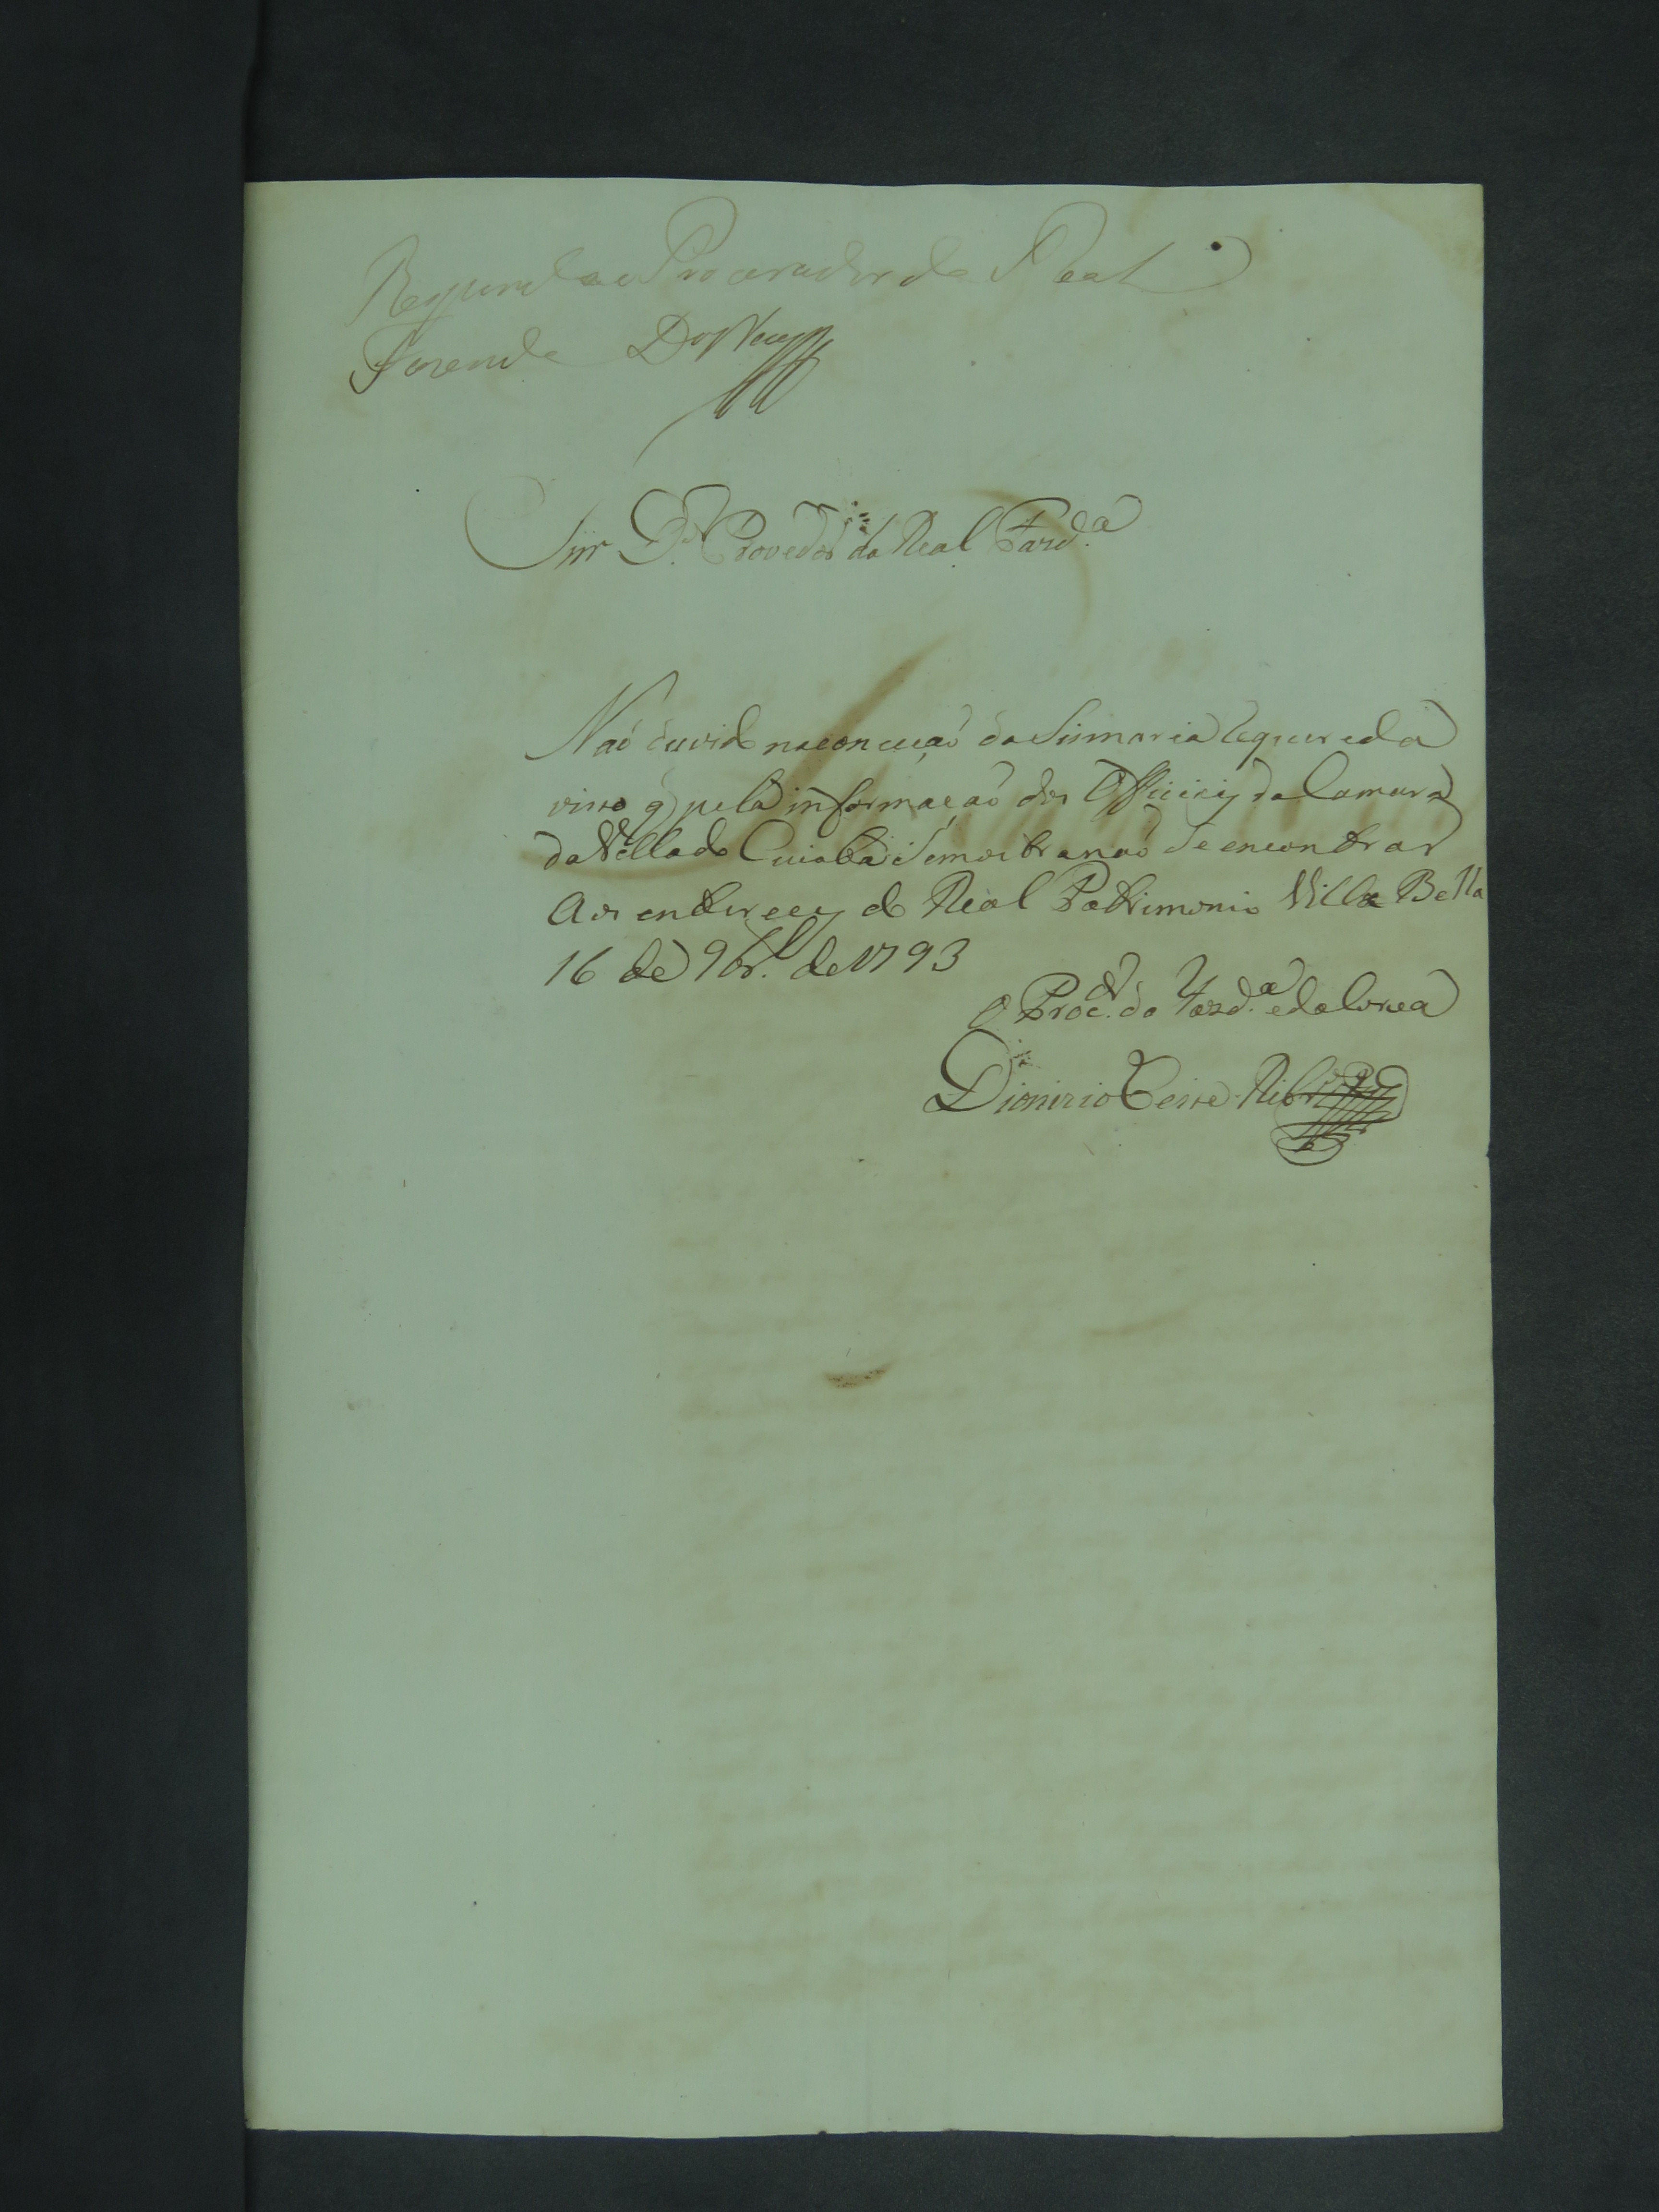 Responda o Procurador da Real
Fazenda
Snr D.r Provedor da Real Fazd.a
Naõ duvido naconceçaõ da Sismaria Requerida
visto q̃ pela informaçaõ dos Officiaes da Camara
da Villa do Cuiaba Semostra naõ Se encontrar
Aos enterecez do Real Patrimonio Villa Bella
16 de 9br.o de 1793
O Proc.dr da Fazd.a e da Coroa
Dionizio